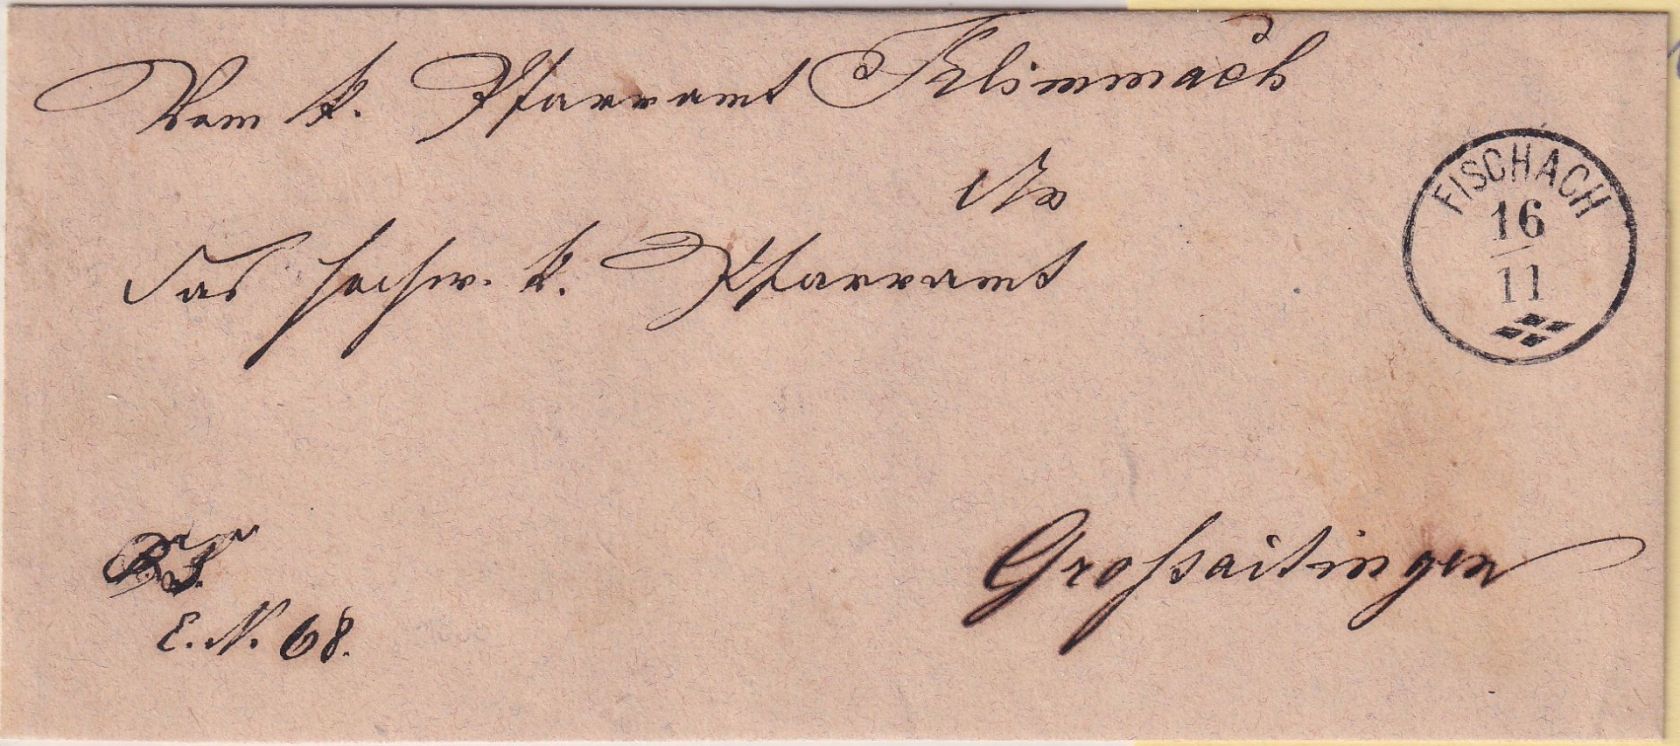 Vom k. Pfarramt Klimmach
An
das hochw. k. Pfarramt
FISCHACH
16
11
R. S.
E. N. 68.
Großaitingen